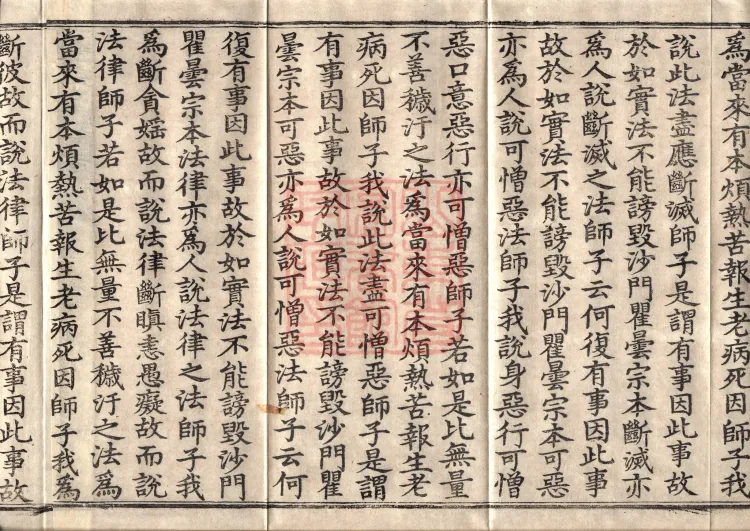 為當來有本煩熱苦報生老病死因師子我
說此法盡應斷滅師子是謂有事因此事故
於如實法不能謗毀沙門瞿曇宗本斷滅亦
為人說斷滅之法師子云何復有事因此事
故於如實法不能謗毀沙門瞿曇宗本可惡
亦為人說可憎惡法師子我說身惡行可憎
惡口意惡行亦可憎惡師子若如是比無量
不善穢汙之法為當來有本煩熱苦報生老
病死因師子我說此法盡可憎惡師子是謂
有事因此事故於如實法不能謗毀沙門瞿
曇宗本可惡亦為人說可憎惡法師子云何
復有事因此事故於如實法不能謗毀沙門
瞿曇宗本法律亦為人說法律之法師子我
為斷貪婬故而說法律斷瞋恚愚癡故而說
法律師子若如是比無量不善穢汙之法為
當來有本煩熱苦報生老病死因師子我為
斷彼故而說法律師子是謂有事因此事故